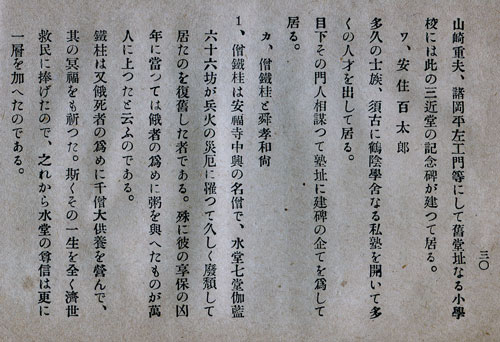 三〇
山崎重夫、諸岡平左工門等にして舊堂址なる小學
校には此の三近堂の記念碑が建つて居る。
ワ、安住百太郎
多久の士族、須古に鶴陰學舍なる私塾を開いて多
くの人才を出して居る。
目下その門人相謀つて塾址に建碑の企てを爲して
居る。
カ、僧鐵桂と舜孝和尙
1、僧鐵桂は安福寺中興の名僧で、水堂七堂伽藍
六十六坊が兵火の災厄に罹つて久しく廢頽して
居たのを復舊した者である。殊に彼の享保の凶
年に當つては餓者の爲めに粥を與へたものが萬
人に上つたと云ふのである。
鐵桂は又餓死者の爲めに千僧大供養を營んで、
其の冥福をも祈つた。斯くその一生を全く濟世
救民に捧げたので、之れから水堂の尊信は更に
一層を加へたのである。